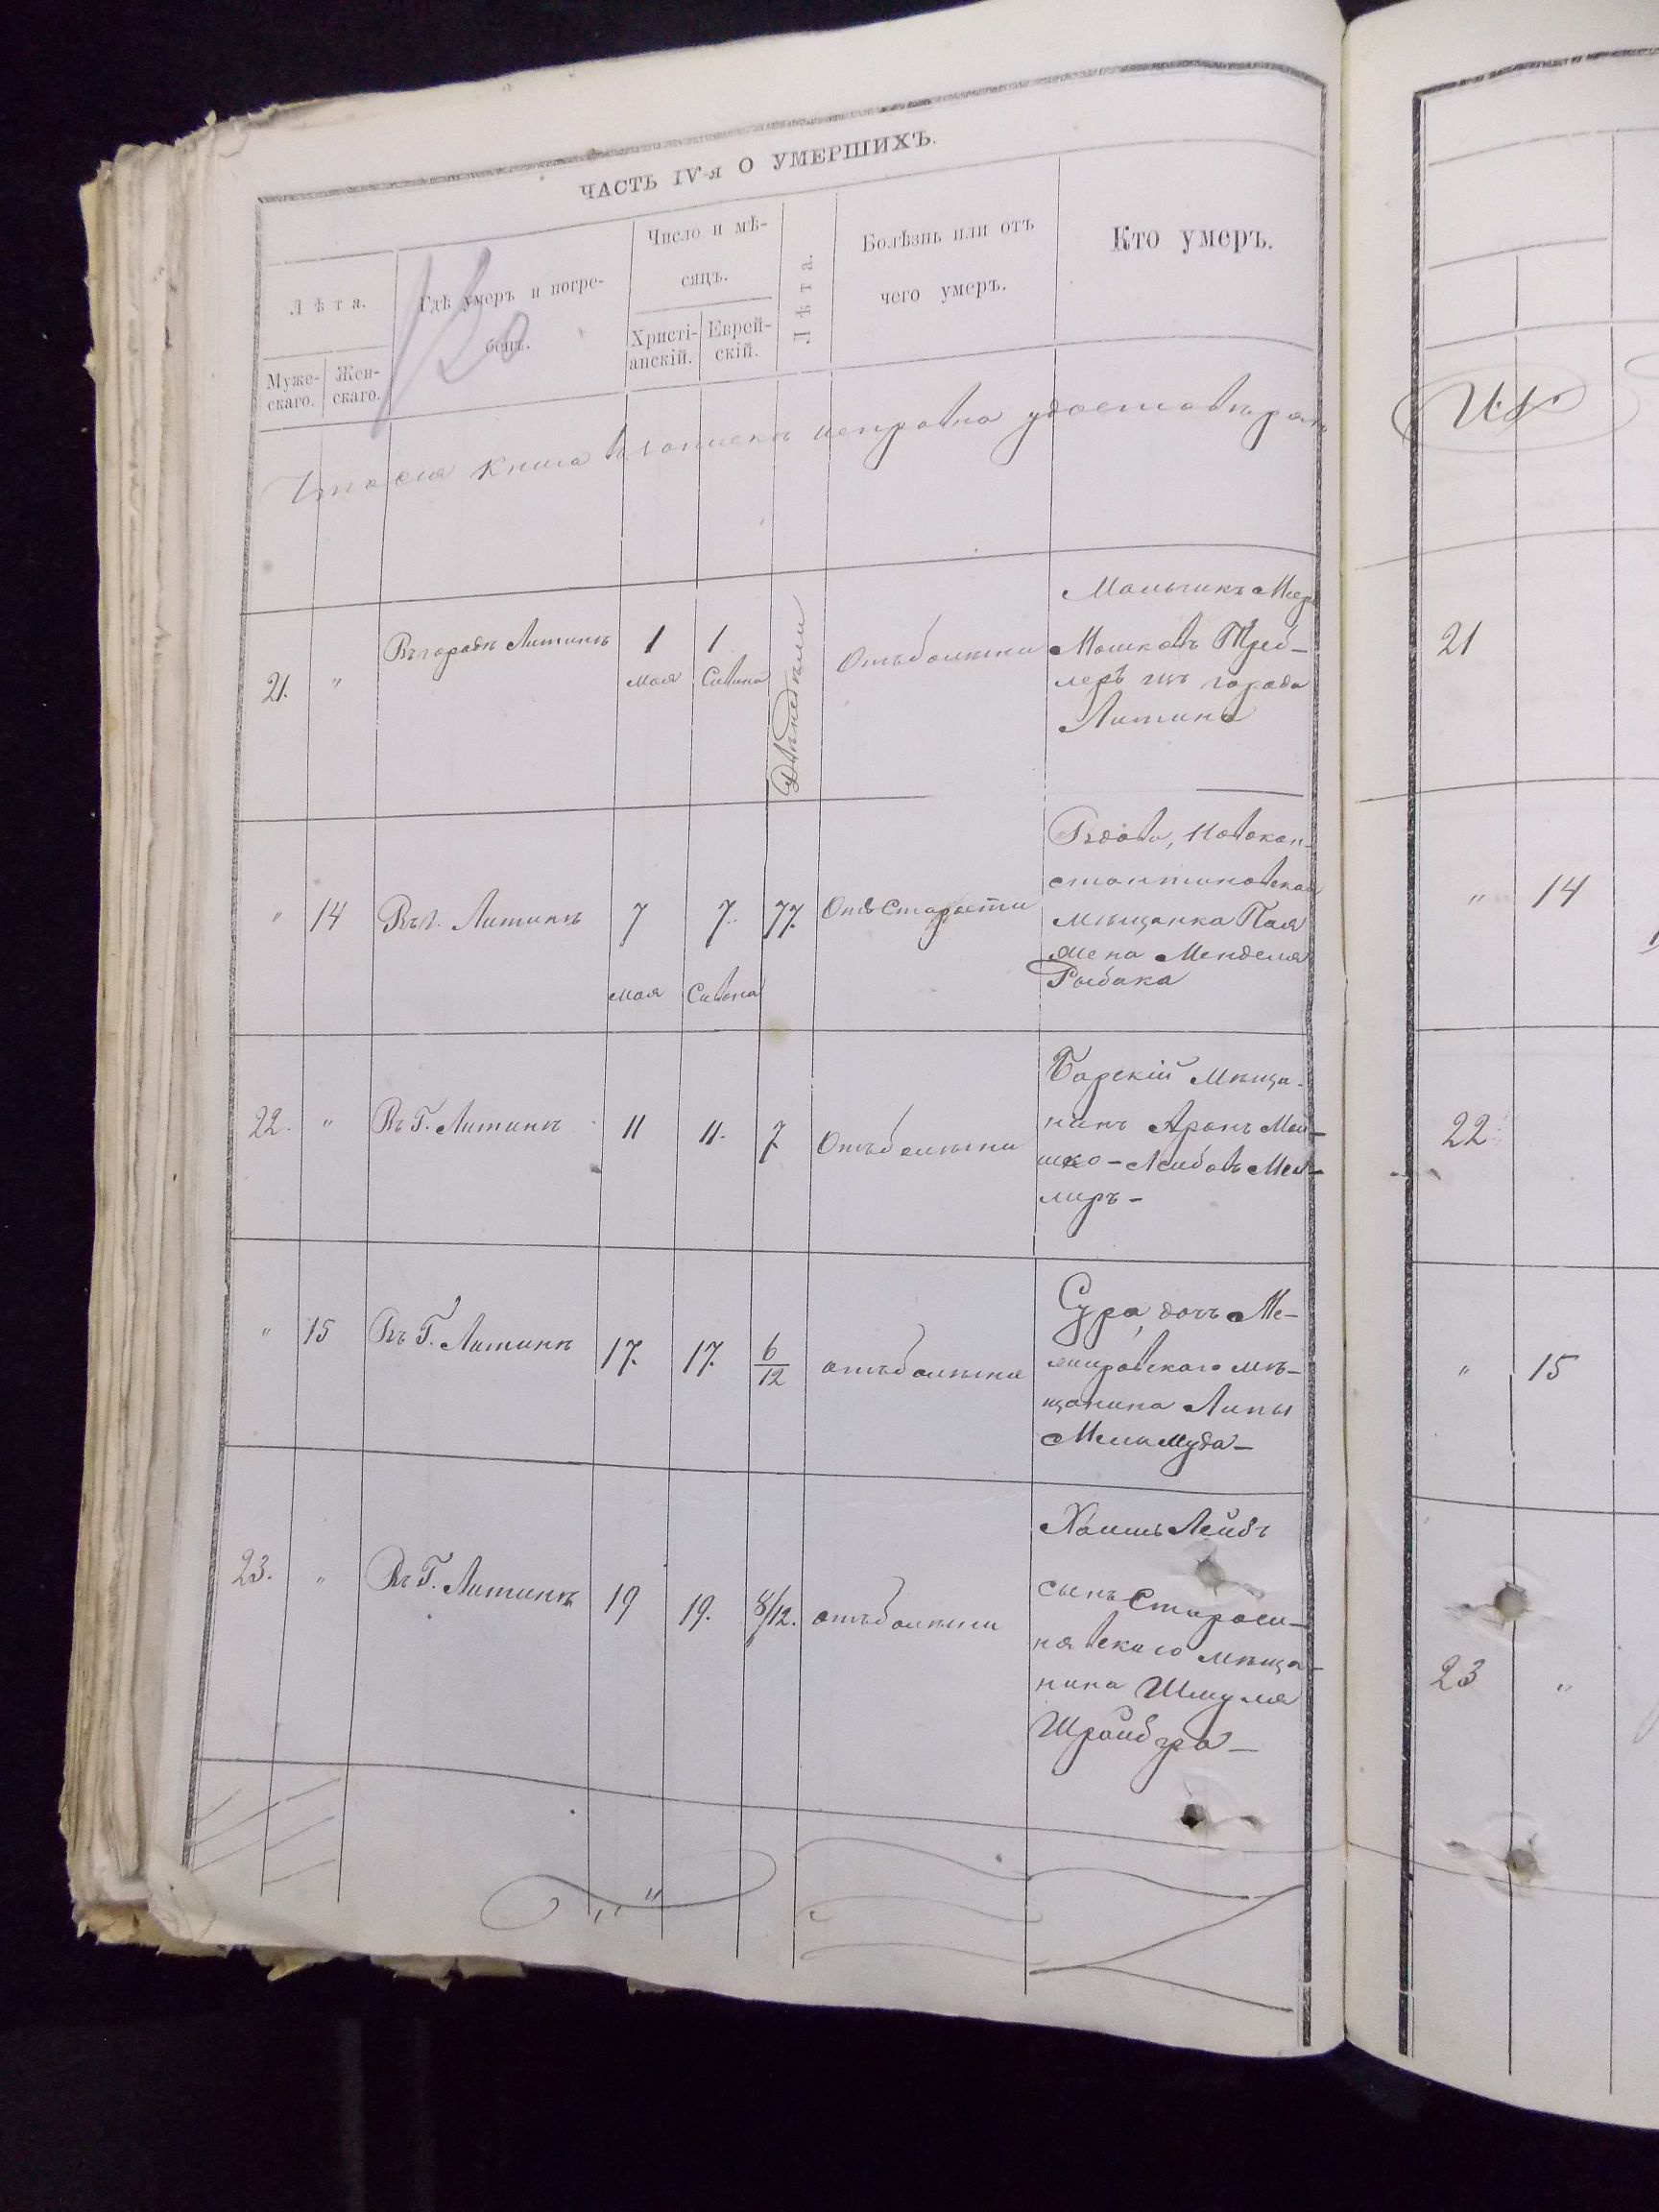 ЧАСТЬ IV-я О УМЕРШИХЪ.
Лѣта.
Муже-
скаго.
Жен-
скаго.
Гдѣ умеръ и погре-
бенъ.
Число и мѣ-
сяцъ.
Христі-
анскій.
Еврей-
скій.
Лѣта.
Болѣзнь или отъ
чего умеръ.
Кто умеръ.
Что сія книга
21. " Въ городѣ Литинѣ 1 мая 1 Сивана Двѣ недѣли Отъ болѣзни
Мальчикъ Меер
Мошковъ
леръ изъ города
Литина
" 14 Въ г. Литинѣ 7 мая 7. Сивана 77. Отъ Старости
Вдова, Новокон-
стантиновская
мѣщанка Пая
жена Менделя
Рыбака
22. " Въ Г. Литинѣ 11 11. 7 Отъ болѣзни
Барскій мѣща-
нинъ Аронъ Мош-
ко-Лейбовъ Мел-
леръ-
" 15 Въ Г. Литинѣ 17. 17. 6/12 отъ болѣзни
Сура, дочь Ме-
жировскаго мѣ-
щанина Липы
23. " Въ Г. Литинѣ 19 19. 8/12. отъ болѣзни
Хаимъ Лейбъ
сынъ Староси-
нявскаго мѣща-
нина Шмуля
Шройбера-
21
" 14
22
" 15
23 "